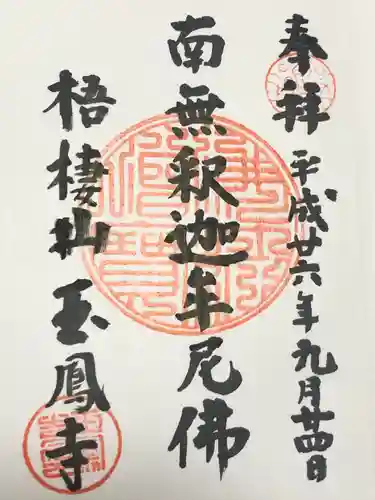 奉拝 平成廿六年九月廿四日
南無釈迦牟尼佛
梧棲山 玉鳳寺